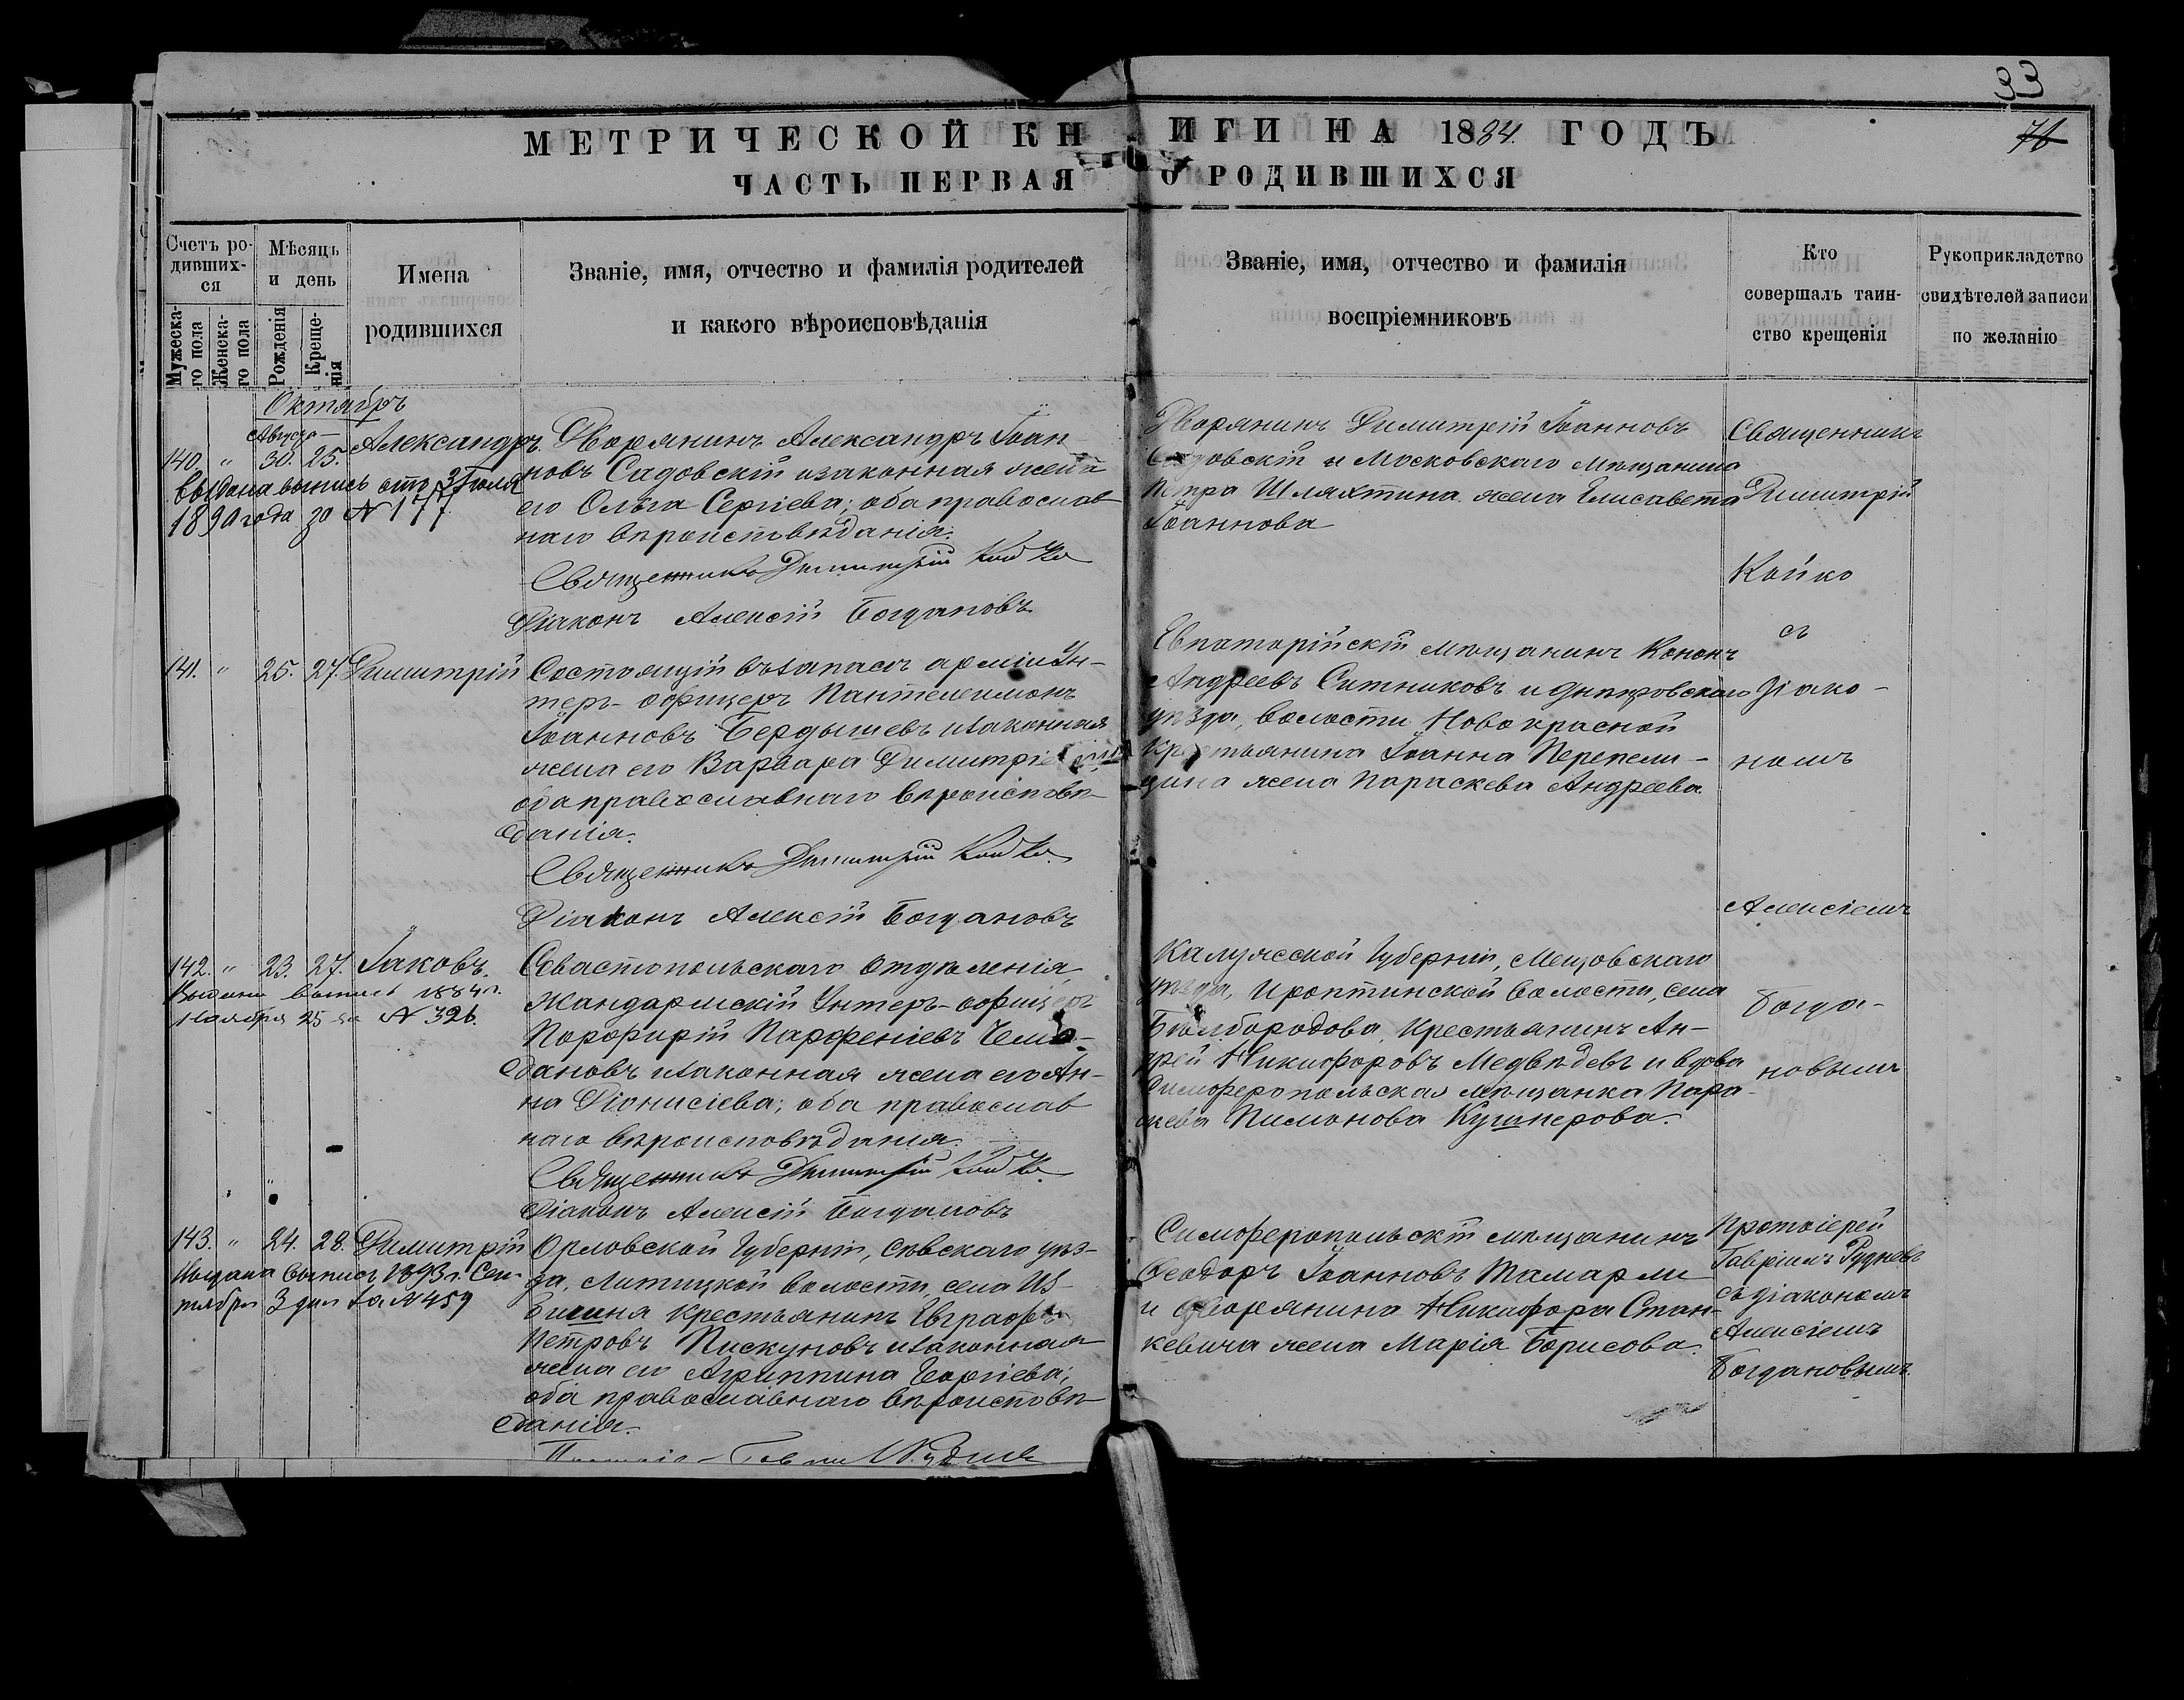 33
МЕТРИЧЕСКОЙ КНИГИ НА 1884. ГОДЪ
76
ЧАСТЬ ПЕРВАЯ О РОДИВШИХСЯ
Счетъ ро-
дивших-
ся
Мужеска-
го пола
Женска-
го пола
Мѣсяцъ
и день
Рожденія
Креще-
нія
Имена
родившихся
Званіе, имя, отчество и фамилія родителей
и какого вѣроисповѣданія
Званіе, имя, отчество и фамилія
воспріемниковъ
Кто
совершалъ таин-
ство крещенія
Рукоприкладство
свидѣтелей записи
по желанію
Октябрь
Августа
140. " 30. 25. Александръ.
Выдана выпись отъ 3 Іюля
1890 года за № 177
Дворянинъ Александръ Іоан-
новъ Садовскій и законная жена
его Ольга Сергіева; оба православ
наго вѣроисповѣданія.
Священникъ Димитрій Койко
Діаконъ Алексій Богдановъ
Дворянинъ Димитрій Іоанновъ
Садовскій и Московскаго мѣщанина
Петра Шляхтина жена Елисавета
Іоаннова
Священникъ
Димитрій
Койко
съ
діако-
номъ
Алексіемъ
Богда-
новымъ
141. " 25. 27. Димитрій
Состоящій въ запасѣ арміи Ун-
теръ-офицеръ Пантелеимонъ
Іоанновъ Бердышевъ и законная
жена его Варвара Димитріе
оба православнаго вѣроисповѣ-
данія.
Священникъ Димитрій Койко
Діаконъ Алексій Богдановъ
Евпаторійскій мѣщанинъ Кононъ
Андреевъ Ситниковъ и Днѣпровскаго
уѣзда, волости Ново красной
крестьянина Іоанна Перепели-
цина жена Параскева Андреева.
142. " 23. 27. Іаковъ.
Выдана выпись 1884 г.
Ноября 25 за № 326.
Севастопольскаго Отдѣленія,
Жандармскій Унтеръ-офицеръ
Порфирій Парфеніевъ Чемо-
дановъ и законная жена его Ан-
на Діонисіева; оба православ
наго вѣроисповѣданія.
Священникъ Димитрій Койко
Діаконъ Алексій Богдановъ
Калужской Губерніи, Мещовскаго
уѣзда, волости, села
крестьянинъ Ан-
дрей Никифоровъ Медвѣдевъ и вдова
Симферопольская мѣщанка Пара-
скева Пимонова Кушнерова.
143. " 24. 28. Димитрій
Выдана выпись 1893 г. Сен-
тября 3 дня за № 459
Орловской Губерніи, Сѣвскаго уѣз-
да, волости, села
крестьянинъ Евграфъ
Петровъ Пискуновъ и законная
жена его Агриппина Георгіева;
оба православнаго вѣроисповѣ-
данія.
Симферопольскій мѣщанинъ
Феодоръ Іоанновъ Тамарли
и дворянина Никифора Стан-
кевича жена Марія Борисова.
Протоіерей
Гавріилъ Рудневъ
съ діакономъ
Алексіемъ
Богдановымъ.